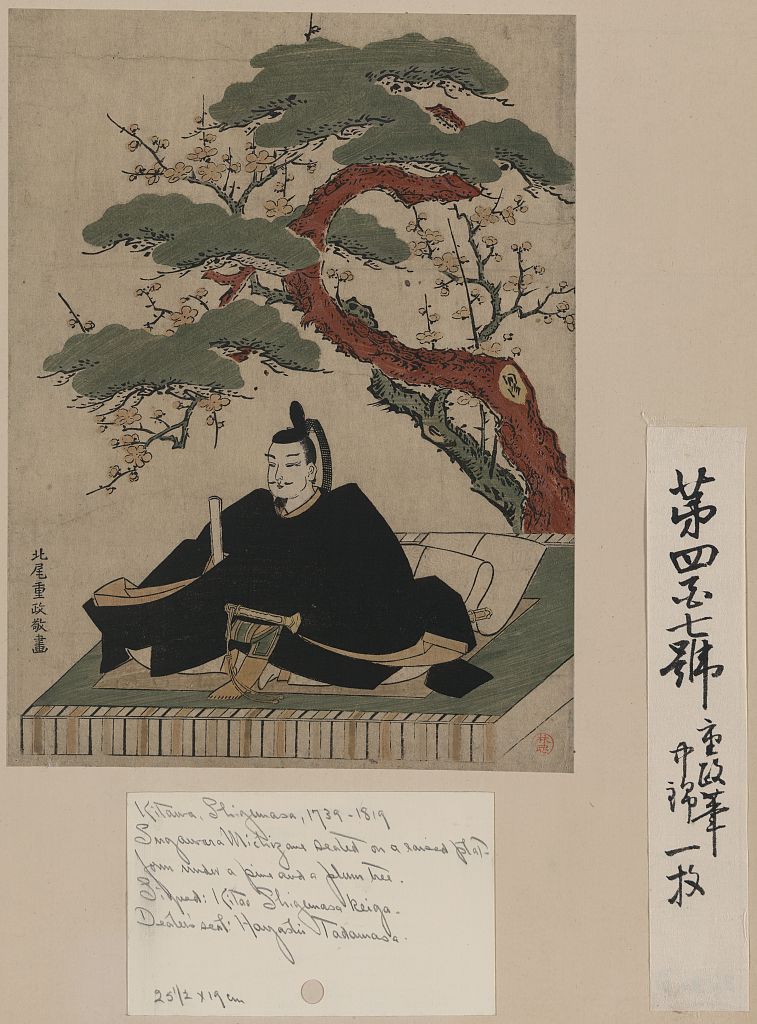 北尾重政敬畫
林忠
Kitawo, Shigemasa, 1739-1819
Sugawara Michizane seated on a raised plat-
form under a pine and a plum tree.
Signed: Kitao Shigemasa keiga.
Dealer's seal: Hayashi Tadamasa.
25 1/2 x 19 cm
第四百七號
重政筆
中錦 一枚